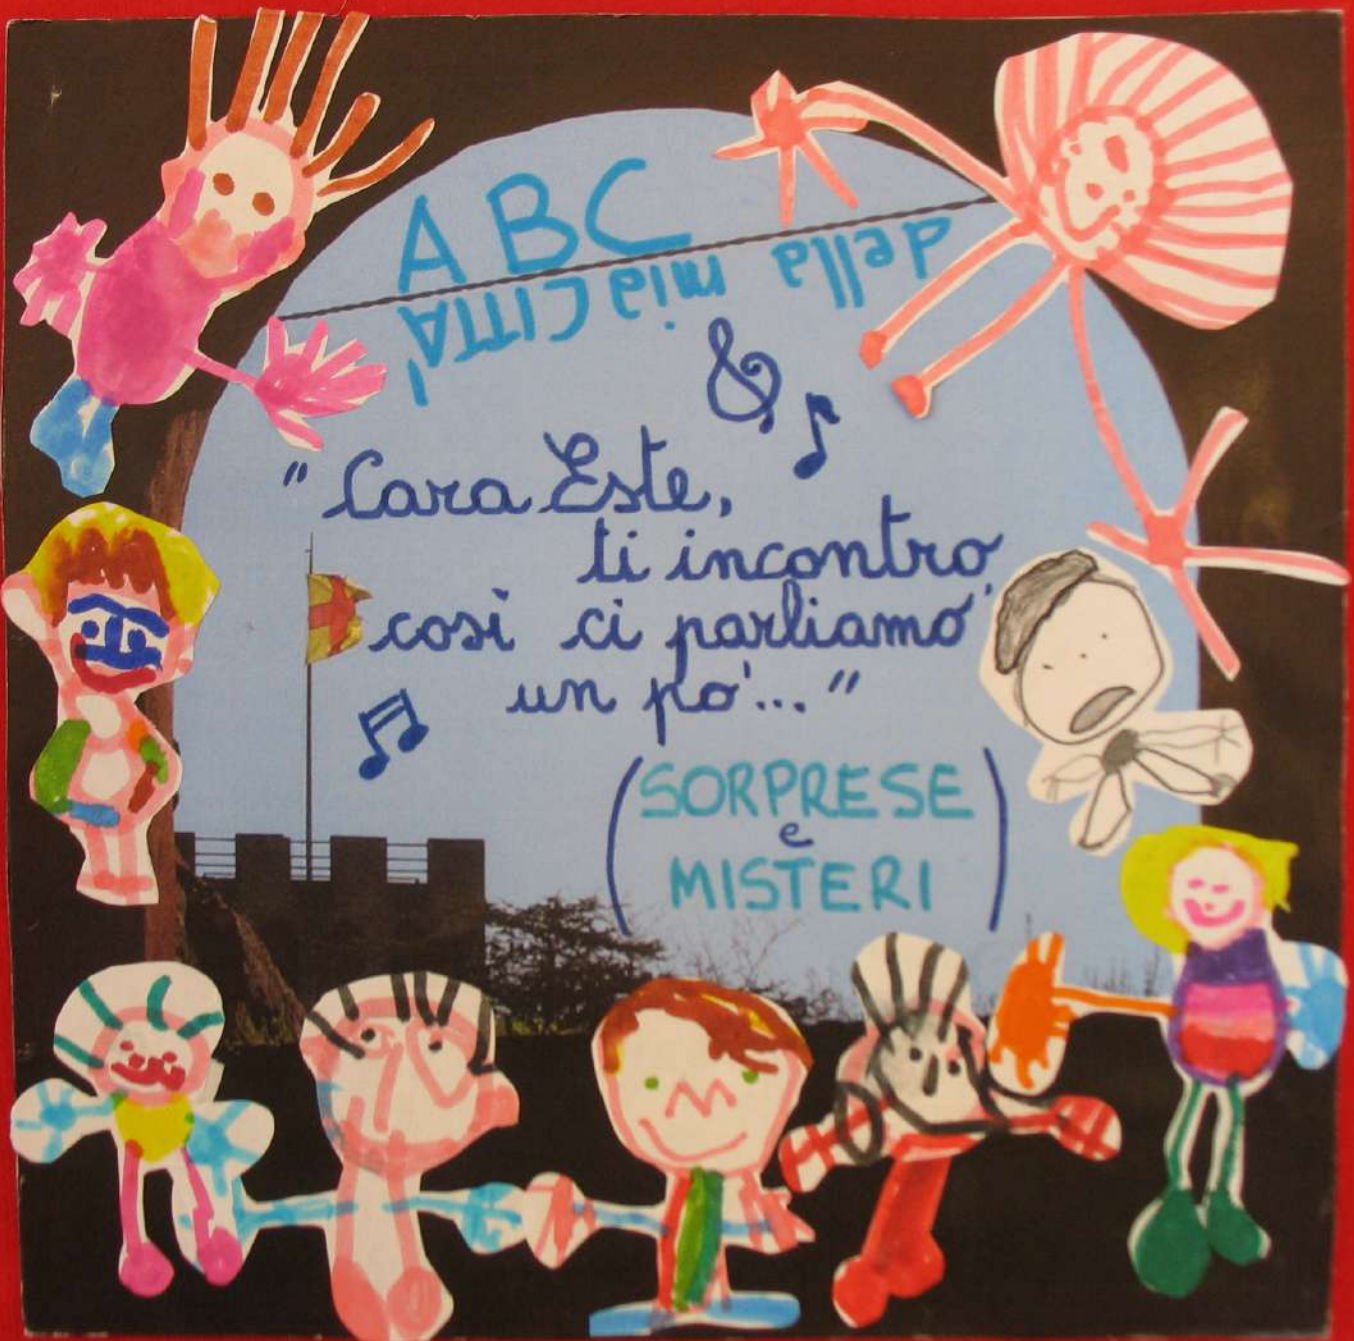 ABC
della mia CITTÀ
&
"Cara Este,
ti incontro,
così ci parliamo
un po'..."
(SORPRESE
e
MISTERI)